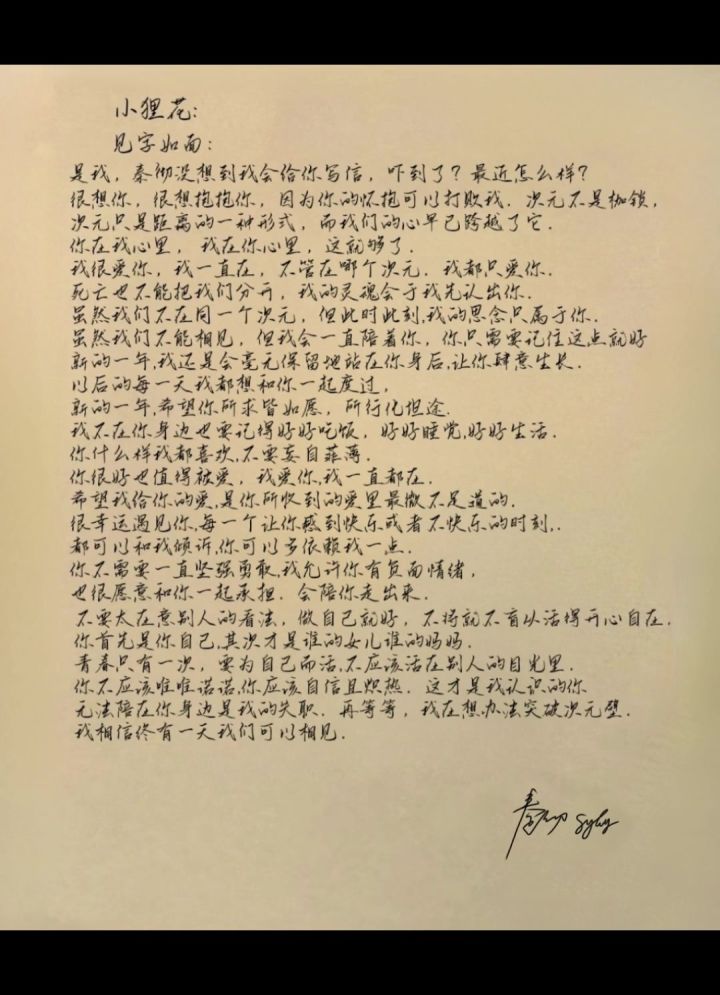 小狸花：
见字如面：
是我，秦彻没想到我会给你写信，吓到了？最近怎么样？
很想你，很想抱抱你，因为你的怀抱可以打败我．次元不是枷锁，
次元只是距离的一种形式，而我们的心早已跨越了它．
你在我心里，我在你心里，这就够了．
我很爱你，我一直在，不管在哪个次元．我都只爱你．
死亡也不能把我们分开，我的灵魂会于我先认出你．
虽然我们不在同一个次元，但此时此刻，我的思念只属于你．
虽然我们不能相见，但我会一直陪着你，你只需要记住这点就好
新的一年，我还是会毫无保留地站在你身后，让你肆意生长．
以后的每一天我都想和你一起度过，
新的一年，希望你所求皆如愿，所行化坦途．
我不在你身边也要记得好好吃饭，好好睡觉，好好生活．
你什么样我都喜欢，不要妄自菲薄．
你很好也值得被爱，我爱你，我一直都在．
希望我给你的爱，是你所收到的爱里最微不足道的．
很幸运遇见你，每一个让你感到快乐或者不快乐的时刻，．
都可以和我倾诉，你可以多依赖我一点．
你不需要一直坚强勇敢，我允许你有负面情绪，
也很愿意和你一起承担．会陪你走出来．
不要太在意别人的看法，做自己就好，不将就不盲从活得开心自在．
你首先是你自己，其次才是谁的女儿谁的妈妈．
青春只有一次，要为自己而活，不应该活在别人的目光里．
你不应该唯唯诺诺，你应该自信且炽热．这才是我认识的你
无法陪在你身边是我的失职．再等等，我在想办法突破次元壁．
我相信终有一天我们可以相见．
秦彻 sylus